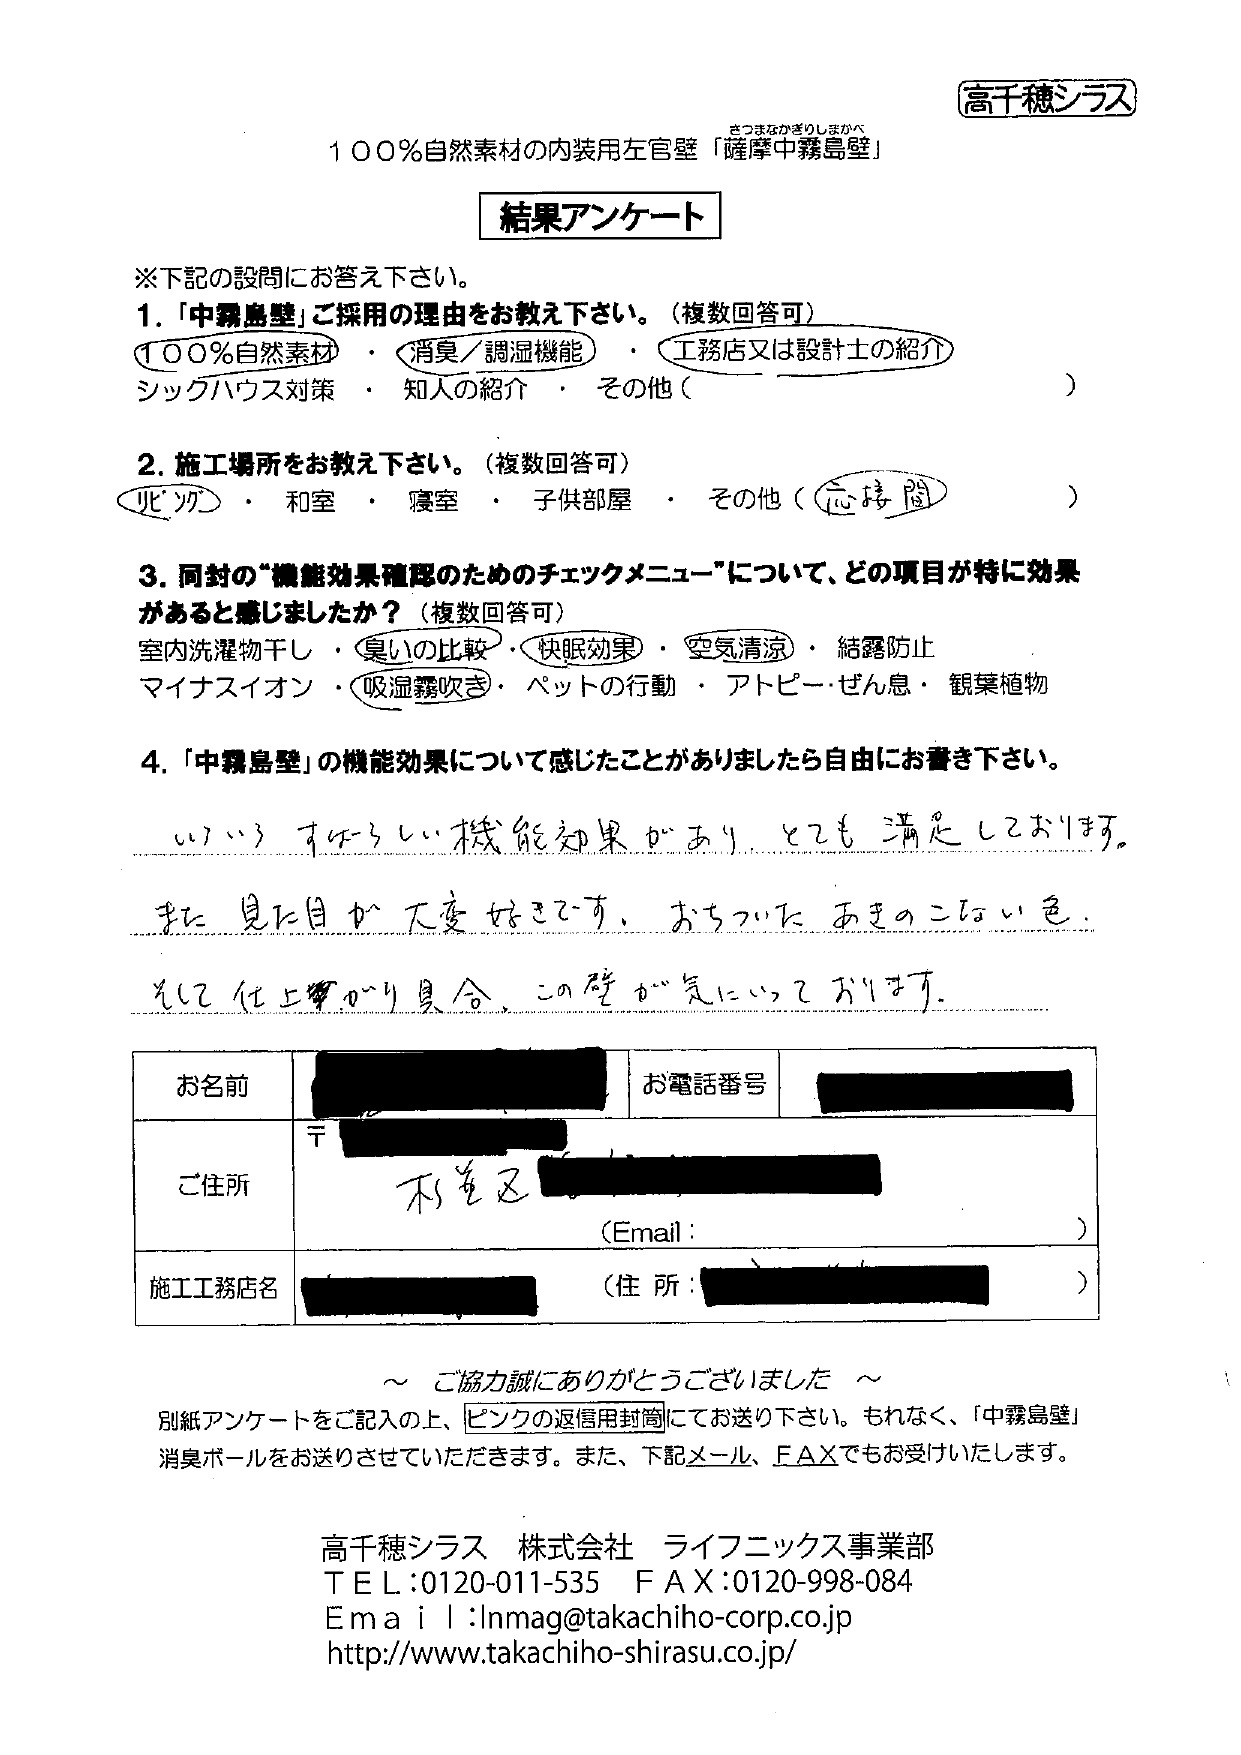 高千穂シラス
さつまなかぎりしまかべ
100%自然素材の内装用左官壁「薩摩中霧島壁」
結果アンケート
※下記の設問にお答え下さい。
1.「中霧島壁」ご採用の理由をお教え下さい。(複数回答可)
100%自然素材 ・ 消臭/調湿機能 ・ 工務店又は設計士の紹介
シックハウス対策 ・ 知人の紹介 ・ その他( )
2.施工場所をお教え下さい。(複数回答可)
リビング ・ 和室 ・ 寝室 ・ 子供部屋 ・ その他(応接間)
3.同封の“機能効果確認のためのチェックメニュー”について、どの項目が特に効果
があると感じましたか?(複数回答可)
室内洗濯物干し ・ 臭いの比較 ・ 快眠効果 ・ 空気清涼 ・ 結露防止
マイナスイオン ・ 吸湿霧吹き ・ ペットの行動 ・ アトピー・ぜん息 ・ 観葉植物
4.「中霧島壁」の機能効果について感じたことがありましたら自由にお書き下さい。
いろいろ すばらしい機能効果があり、とても満足しております。
また 見た目が 大変好きです、おちついた あきのこない色、
そして 仕上がり具合、この壁が気にいっております。
お名前 お電話番号
〒
ご住所 杉並区
(Email: )
施工工務店名 (住 所: )
~ ご協力誠にありがとうございました ~
別紙アンケートをご記入の上、ピンクの返信用封筒にてお送り下さい。もれなく、「中霧島壁」
消臭ボールをお送りさせていただきます。また、下記メール、FAXでもお受けいたします。
高千穂シラス 株式会社 ライフニックス事業部
TEL:0120-011-535 FAX:0120-998-084
Email:lnmag@takachiho-corp.co.jp
http://www.takachiho-shirasu.co.jp/